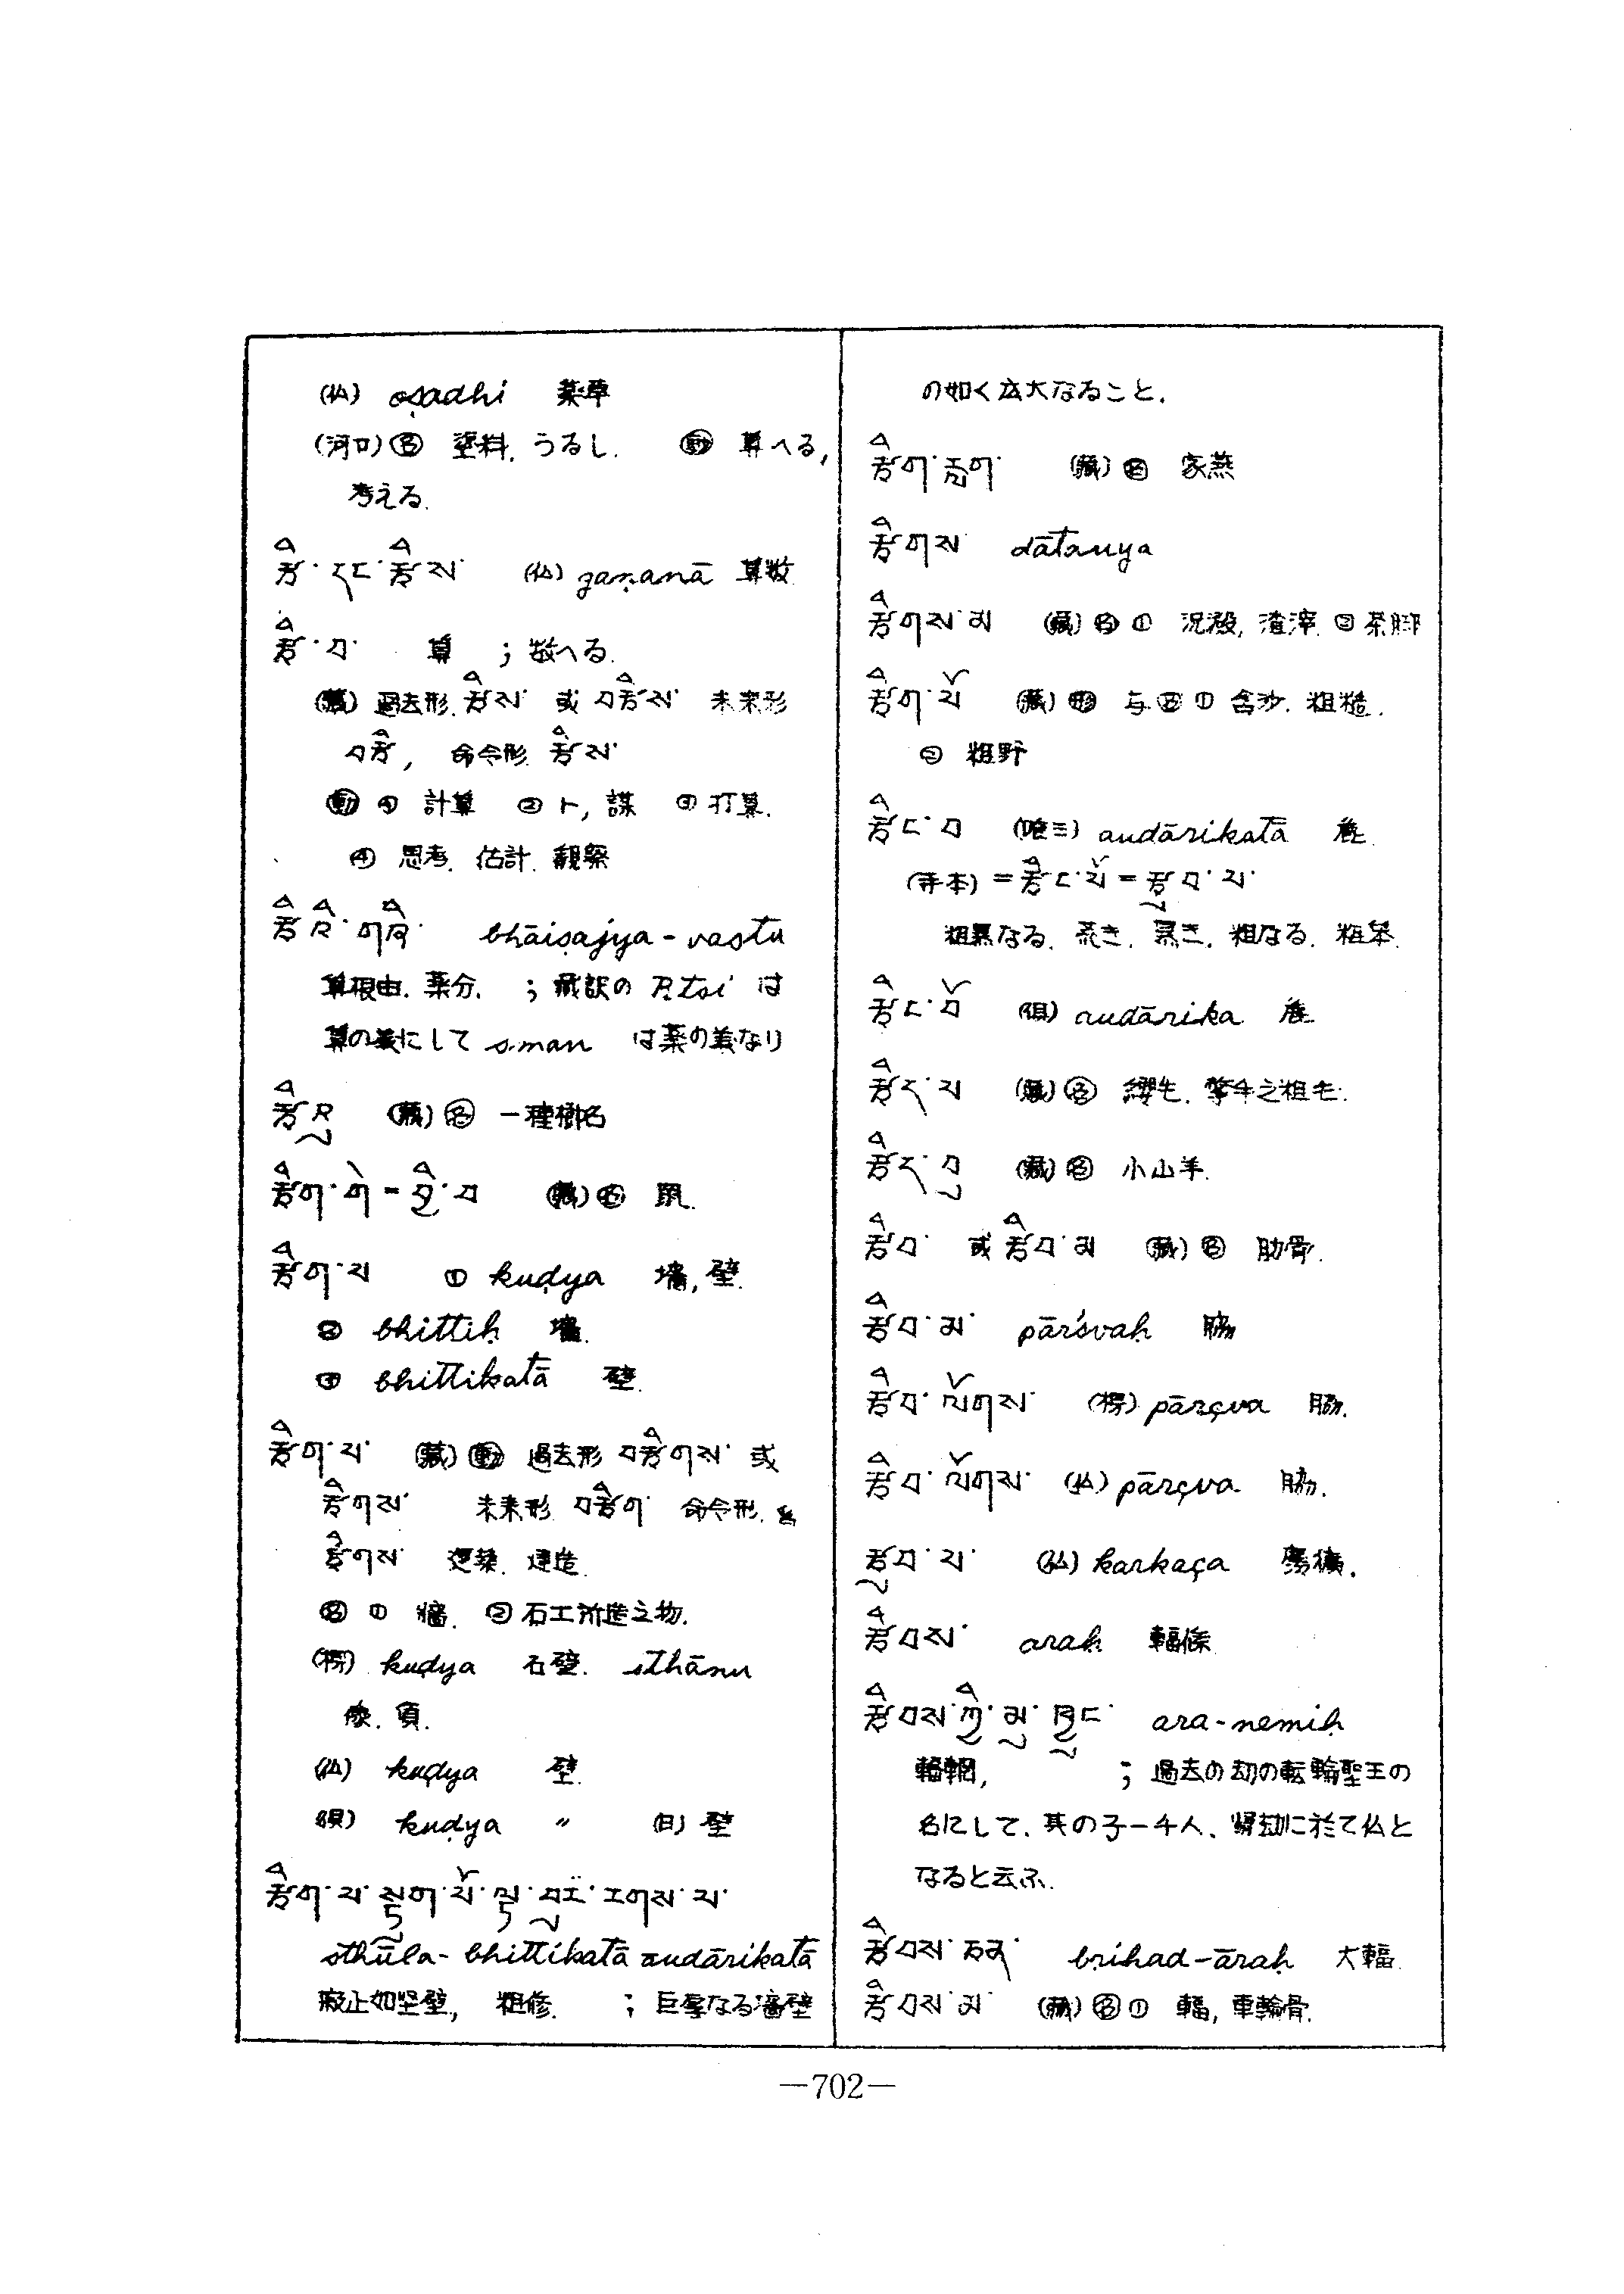 (仏) oṣadhi 薬草
(河口) 名 塗料, うるし. 動 算へる,
考える.
རྩི་དང་རྩིས་ (仏) gaṇanā 算数
རྩི་བ་ 算 ; 数へる.
(蔵) 過去形 རྩིས་ 或 བརྩིས་ 未来形
བརྩི, 命令形 རྩིས་
動 ① 計算 ② ト, 謀 ③ 打算.
④ 思考. 估計. 観察
bhāiṣajya-vastu
算根由. 薬分. ; 蔵訳の R.tsi は
算の義にして s.man は薬の義なり
(蔵) 名 一種樹名
རྩིག་གེ = བྱི་བ (蔵) 名 鼠.
རྩིག་པ ① kuḍya 墻, 壁.
② bhittiḥ 墻.
③ bhittikatā 壁.
རྩིག་པ་ (蔵) 動 過去形 བརྩིགས་ 或
རྩིགས་ 未来形 བརྩིག་ 命令形.
རྩིགས་ 建築. 建造.
名 ① 牆. ② 石工所造之物.
(榜) kuḍya 石壁. sthānu
(仏) kuḍya 壁.
kuḍya 〃 (目) 壁
རྩིག་པ་སྦོག་པོ་ལྟ་བུར་རགས་པ་
sthūla-bhittikatā audārikatā
如堅壁, 粗修. ; 巨厚なる墻壁
の如く広大なること.
(蔵) 名 家燕
རྩིགས་ dātavya
རྩིགས་མ (蔵) 名 ① 況殺, 渣滓 ② 茶脚
རྩིག་པོ (蔵) 形 与 副 ① 含沙. 粗糙.
② 粗野
རྩིང་བ (唯三) audārikatā 麁.
(寺本) = རྩིང་པོ = རྩུབ་པ་
粗悪なる. 荒き. 粗なる. 粗笨.
རྩིང་བོ audārika 麁
རྩིད་པ (蔵) 名 纓毛. 犛牛之粗毛.
རྩིད་བུ (蔵) 名 小山羊.
རྩིབ་ 或 རྩིབ་མ (蔵) 名 肋骨.
རྩིབ་མ་ pārśvaḥ 脇
རྩིབ་ལོགས་ (榜) pārçva 脇.
རྩིབ་ལོགས་ (仏) pārçva 脇.
རྩུབ་པ་ (仏) karkaça 麁獷.
རྩིབས་ araḥ 輻條
རྩིབས་ཀྱི་མུ་ཁྱུད་ ara-nemiḥ
輻輞, ; 過去の劫の転輪聖王の
名にして, 其の子一千人, 賢劫に於て仏と
なると云ふ.
རྩིབས་ཆེན་ bṛihad-āraḥ 大輻.
རྩིབས་མ་ (蔵) 名 ① 輻, 車輪骨.
—702—